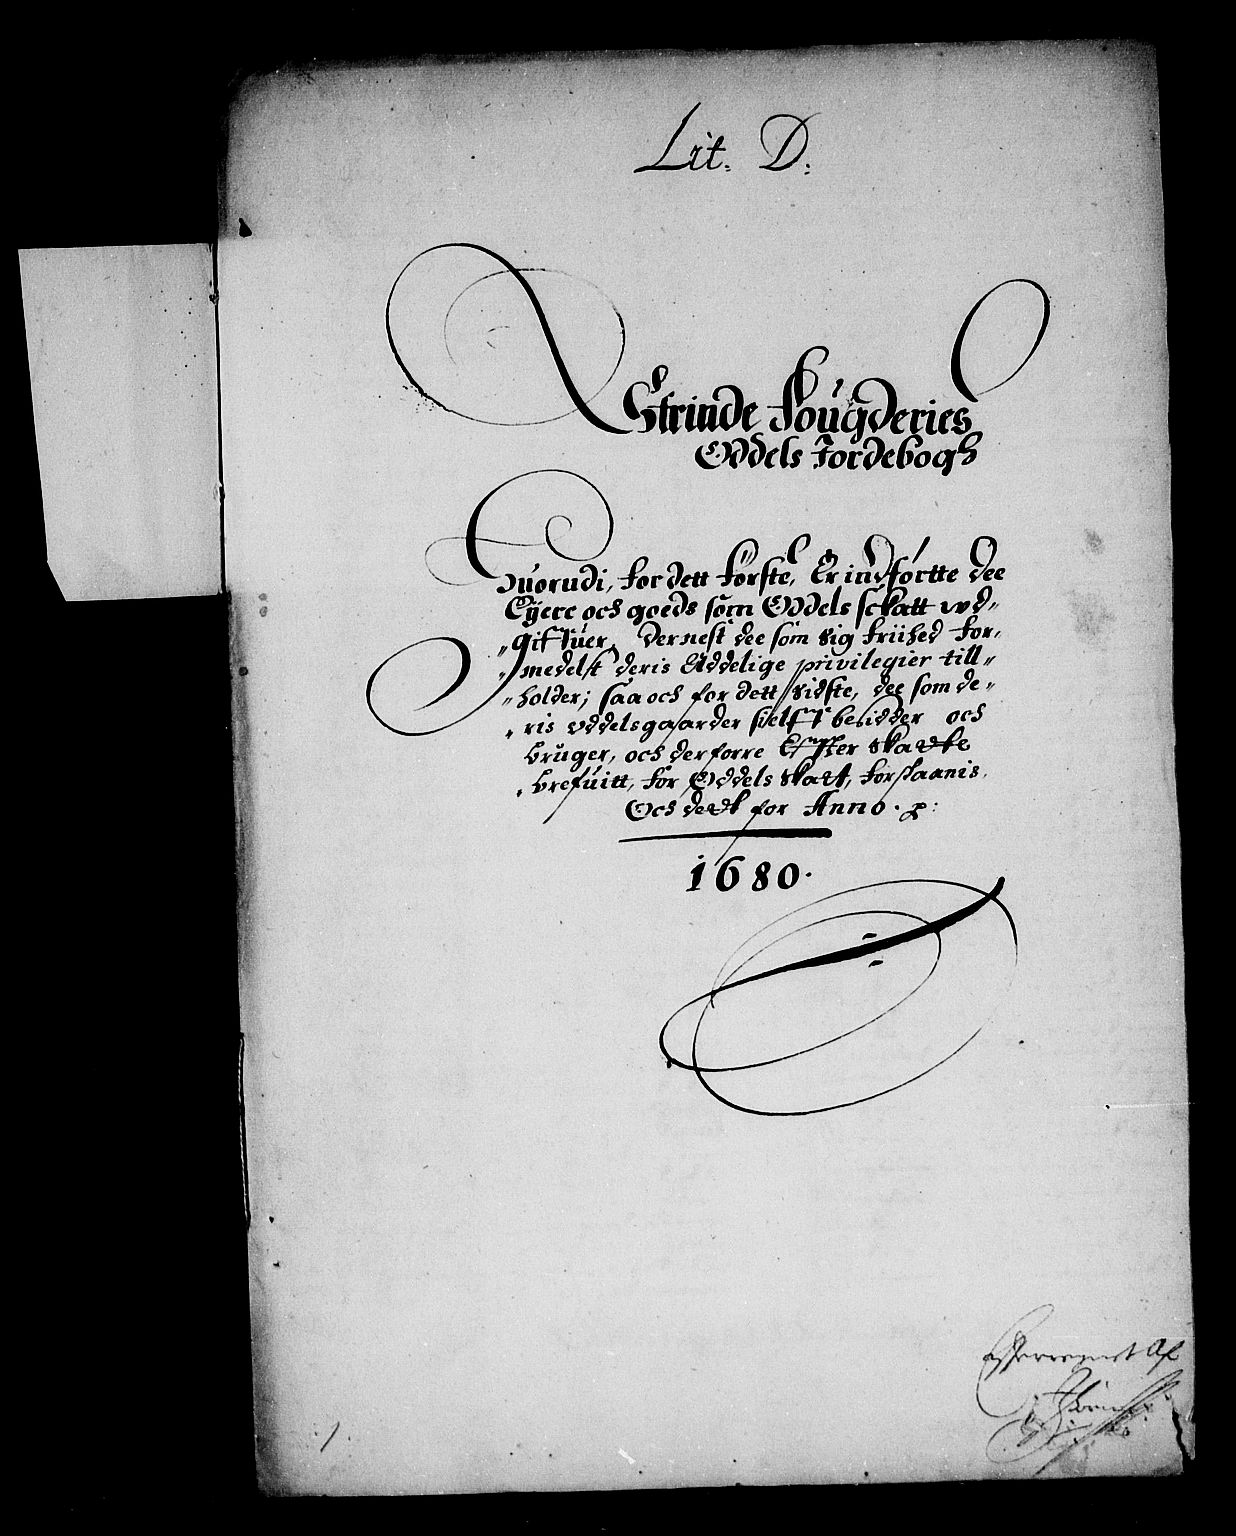 Lit. D.
Strinde Fougderies
Oddels Jordebogh
Huorudi, for dett første, Er indførtte dee
Eyere och goeds som Oddels schatt wd-
"gifuer, Dernest dee som sig friihed for,
"medelst deris Addelige privilegier till"
"holder; saa och for dett sidste, dee som de"
"ris oddelsgaarder sielff besidder och
bruger, och derforre Effter skatte
"brefuitt, for Oddels skatt, forskaanis,
Och dett for Anno.
1680.
Efterregnet Af
1